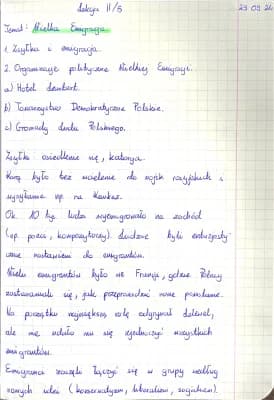 Lekcja 11/5 23.09.21
Temat: Wielka Emigracja
1. Zsyłka i emigracja.
2. Organizacje polityczne Wielkiej Emigracji.
a) Hotel Lambert.
b) Towarzystwo Demokratyczne Polskie.
c) Gromady Ludu Polskiego.
Zsyłka: osiedlenie się, katorga.
Karą było też wcielenie do wojsk rosyjskich i
wysyłanie np. na Kaukaz.
Ok. 10 tyś. ludzi wyemigrowało na zachód
(np. poeci, kompozytorzy). Ludzie byli entuzjasty
cznie nastawieni do emigrantów.
Wielu emigrantów było we Francji, gdzie Polacy
zastanawiali się, jak przeprowadzić nowe powstanie.
Na początku największą rolę odgrywał
ale nie udało mu się zjednoczyć wszystkich
emigrantów.
Emigranci zaczęli łączyć się w grupy według
swoich idei (konserwatyzm, liberalizm, socjalizm).